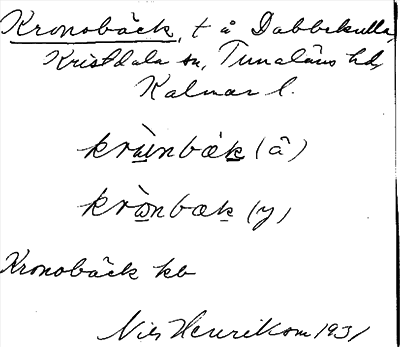 Kronobäck, t å Dabbekulla,
Kristdala sn, Tunaläns hd,
Kalmar l.
krùnbäk (ä)
krònbæk (y)
Kronobäck kb
Nils Henrikson 1931